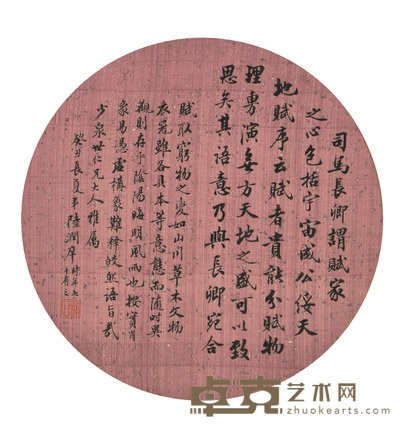 司馬長卿謂賦家
之心包括宇宙成公綏天
地賦序云賦者貴能分賦物
理旉演無方天地之盛可以致
思矣其語意乃與長卿宛合
賦取窮物之變如山川草木文物
衣冠雖各具本等意態而隨時異
觀則存乎陰陽晦明風雨也按實肖
象易憑虛構象難
少泉世仁兄大人雅屬
癸丑長夏弟陸潤庠時年七
十有三
卓克艺术网
zhuokearts.com